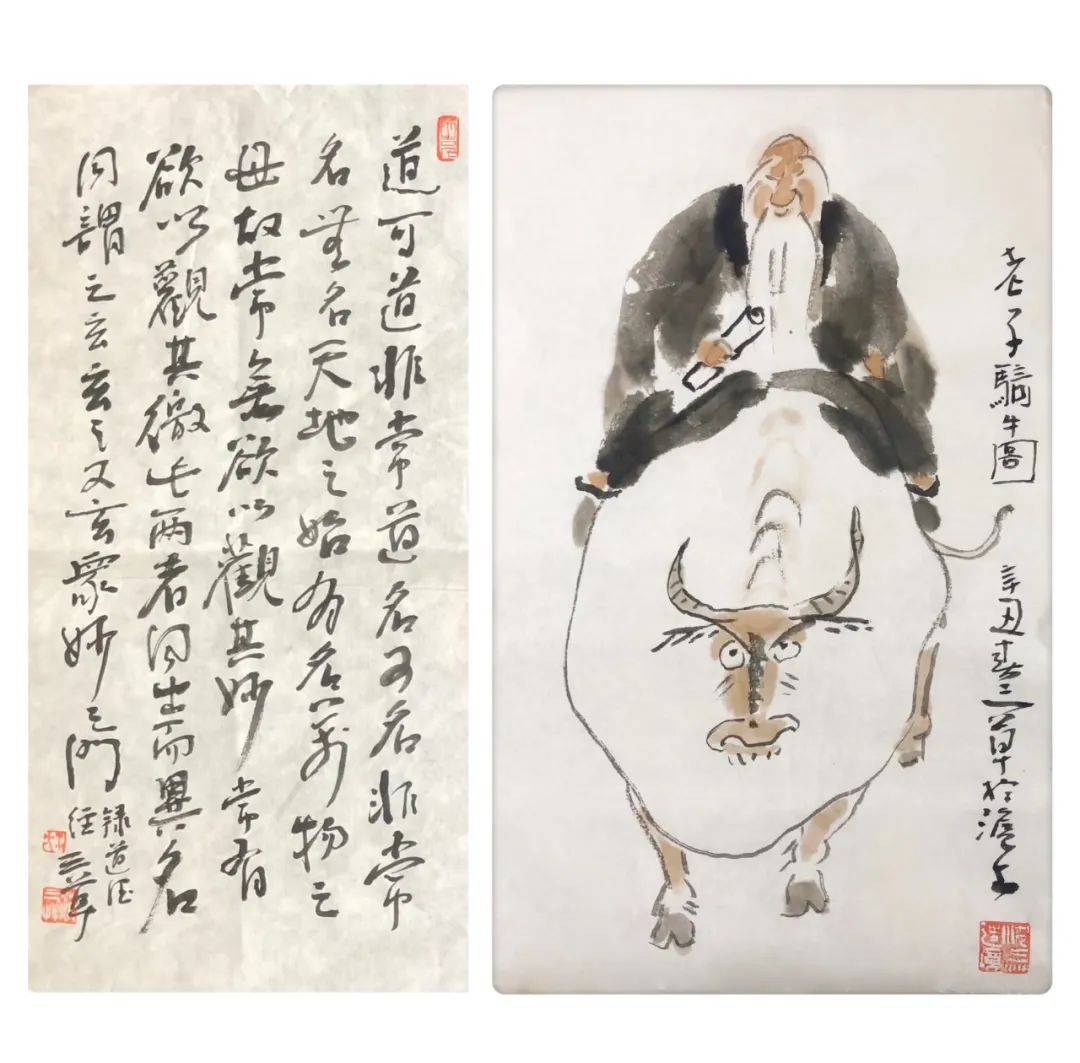 道可道非常道名可名非常
名無名天地之始有名萬物之
母故常無欲以觀其妙常有
欲以觀其徼此兩者同出而異名
同謂之玄玄之又玄眾妙之門
錄道德
經三草
老子騎牛圖
辛丑春三草於滬上